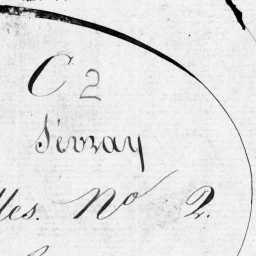 C 2
Sévray
lles. No 2.